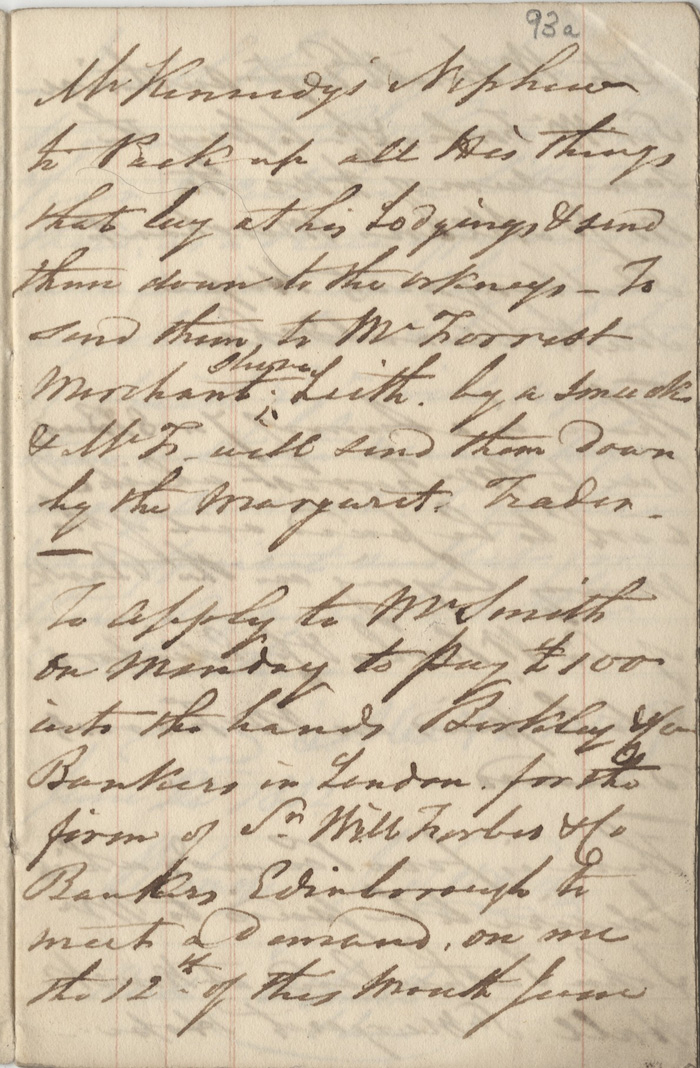 93a
Mr Kennedy's Nephew
to Pack up all His things
that lay at his Lodgings & send
them down to the orkneys – To
send them to Mr Forrest
Merchant Leith. by a Smack
& Mr F. will send them Down
by the Margaret. Trader –
To apply to Mr Smith
on Monday to pay £100
into the hands Berkley & Co
Bankers in London. for the
firm of Sr Will Forbes & Co
Bankers Edinborough to
meet a Demand, on me
the 12th of this Month June